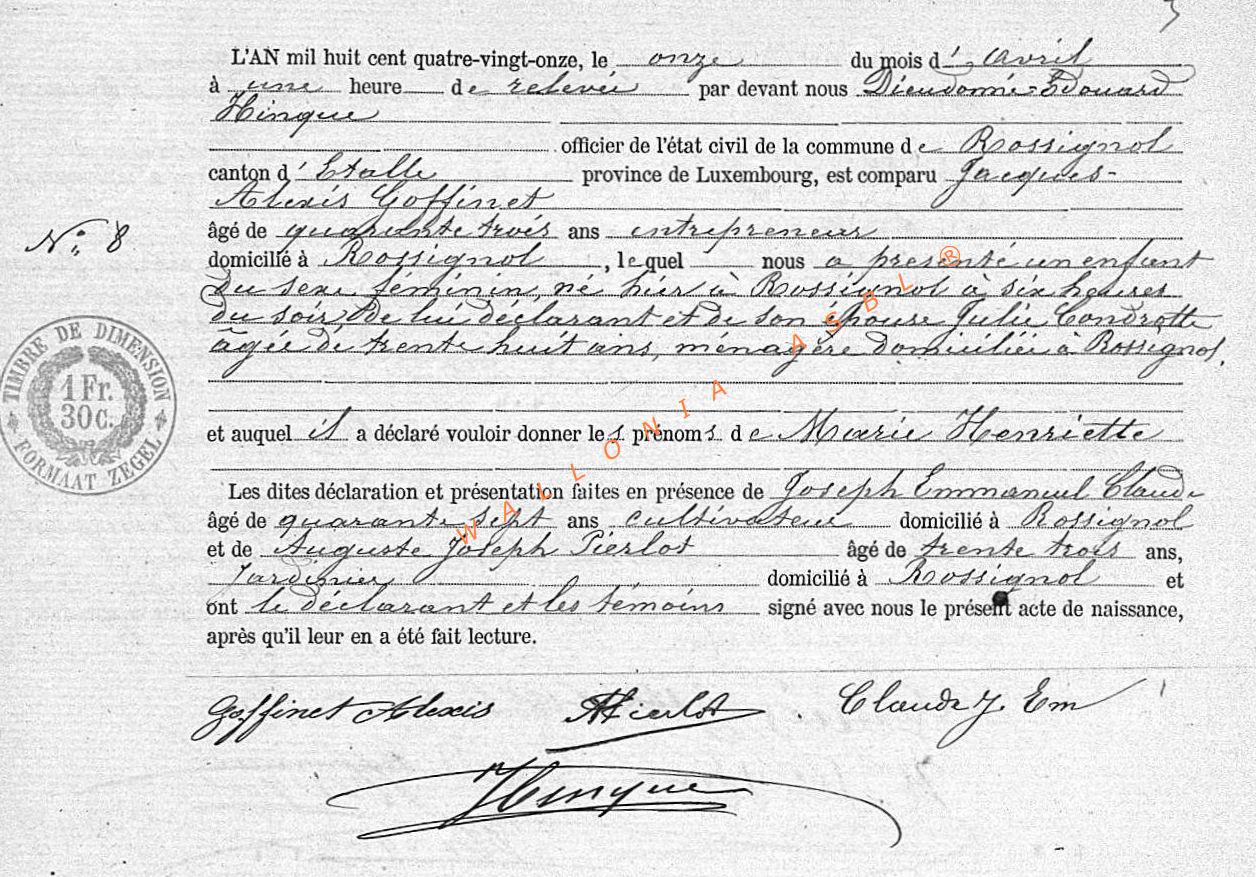 L'AN mil huit cent quatre-vingt-onze, le onze du mois d'avril
à une heure de relevée par devant nous Dieudonné-Edouard
Hinque
officier de l'état civil de la commune de Rossignol
canton d'Etalle province de Luxembourg, est comparu Jacques-
Alexis Goffinet
âgé de quarante trois ans entrepreneur
domicilié à Rossignol, lequel nous a présenté un enfant
du sexe féminin, né hier à Rossignol à six heures
du soir de lui déclarant et de son épouse Julie Condrotte
âgée de trente huit ans, ménagère domiciliée à Rossignol.
et auquel il a déclaré vouloir donner les prénoms de Marie Henriette
Les dites déclaration et présentation faites en présence de Joseph Emmanuel Claude
âgé de quarante sept ans cultivateur domicilié à Rossignol
et de Auguste Joseph Pierlot âgé de trente trois ans,
Jardinier domicilié à Rossignol et
ont le déclarant et les témoins signé avec nous le présent acte de naissance,
après qu'il leur en a été fait lecture.
Goffinet Alexis APierlot Claude J. Em
Hinque
No. 8
TIMBRE DE DIMENSION
1 Fr.
30 C.
FORMAAT ZEGEL
WALLONIA ASBL ®